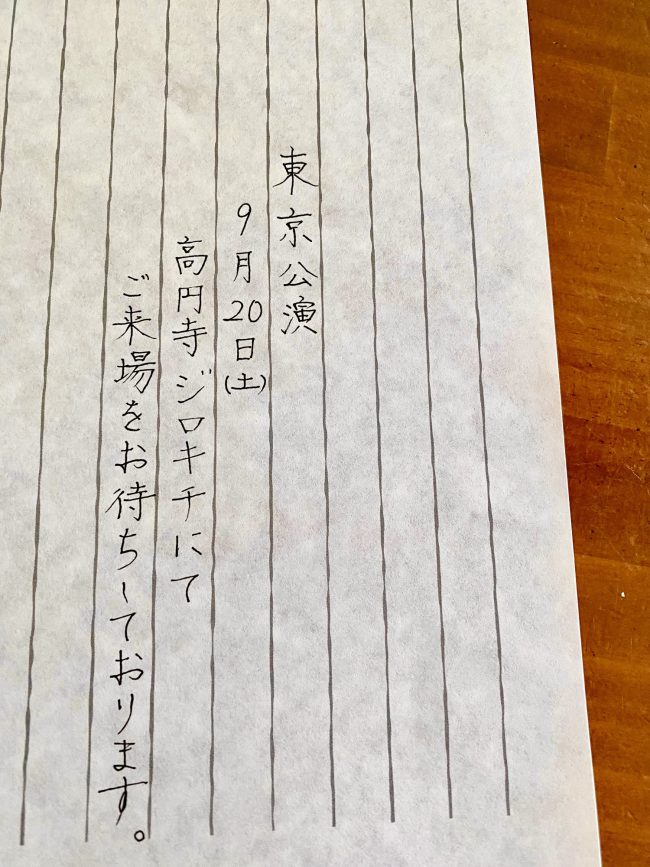 東京公演
9月20日(土)
高円寺ジロキチにて
ご来場をお待ちしております。